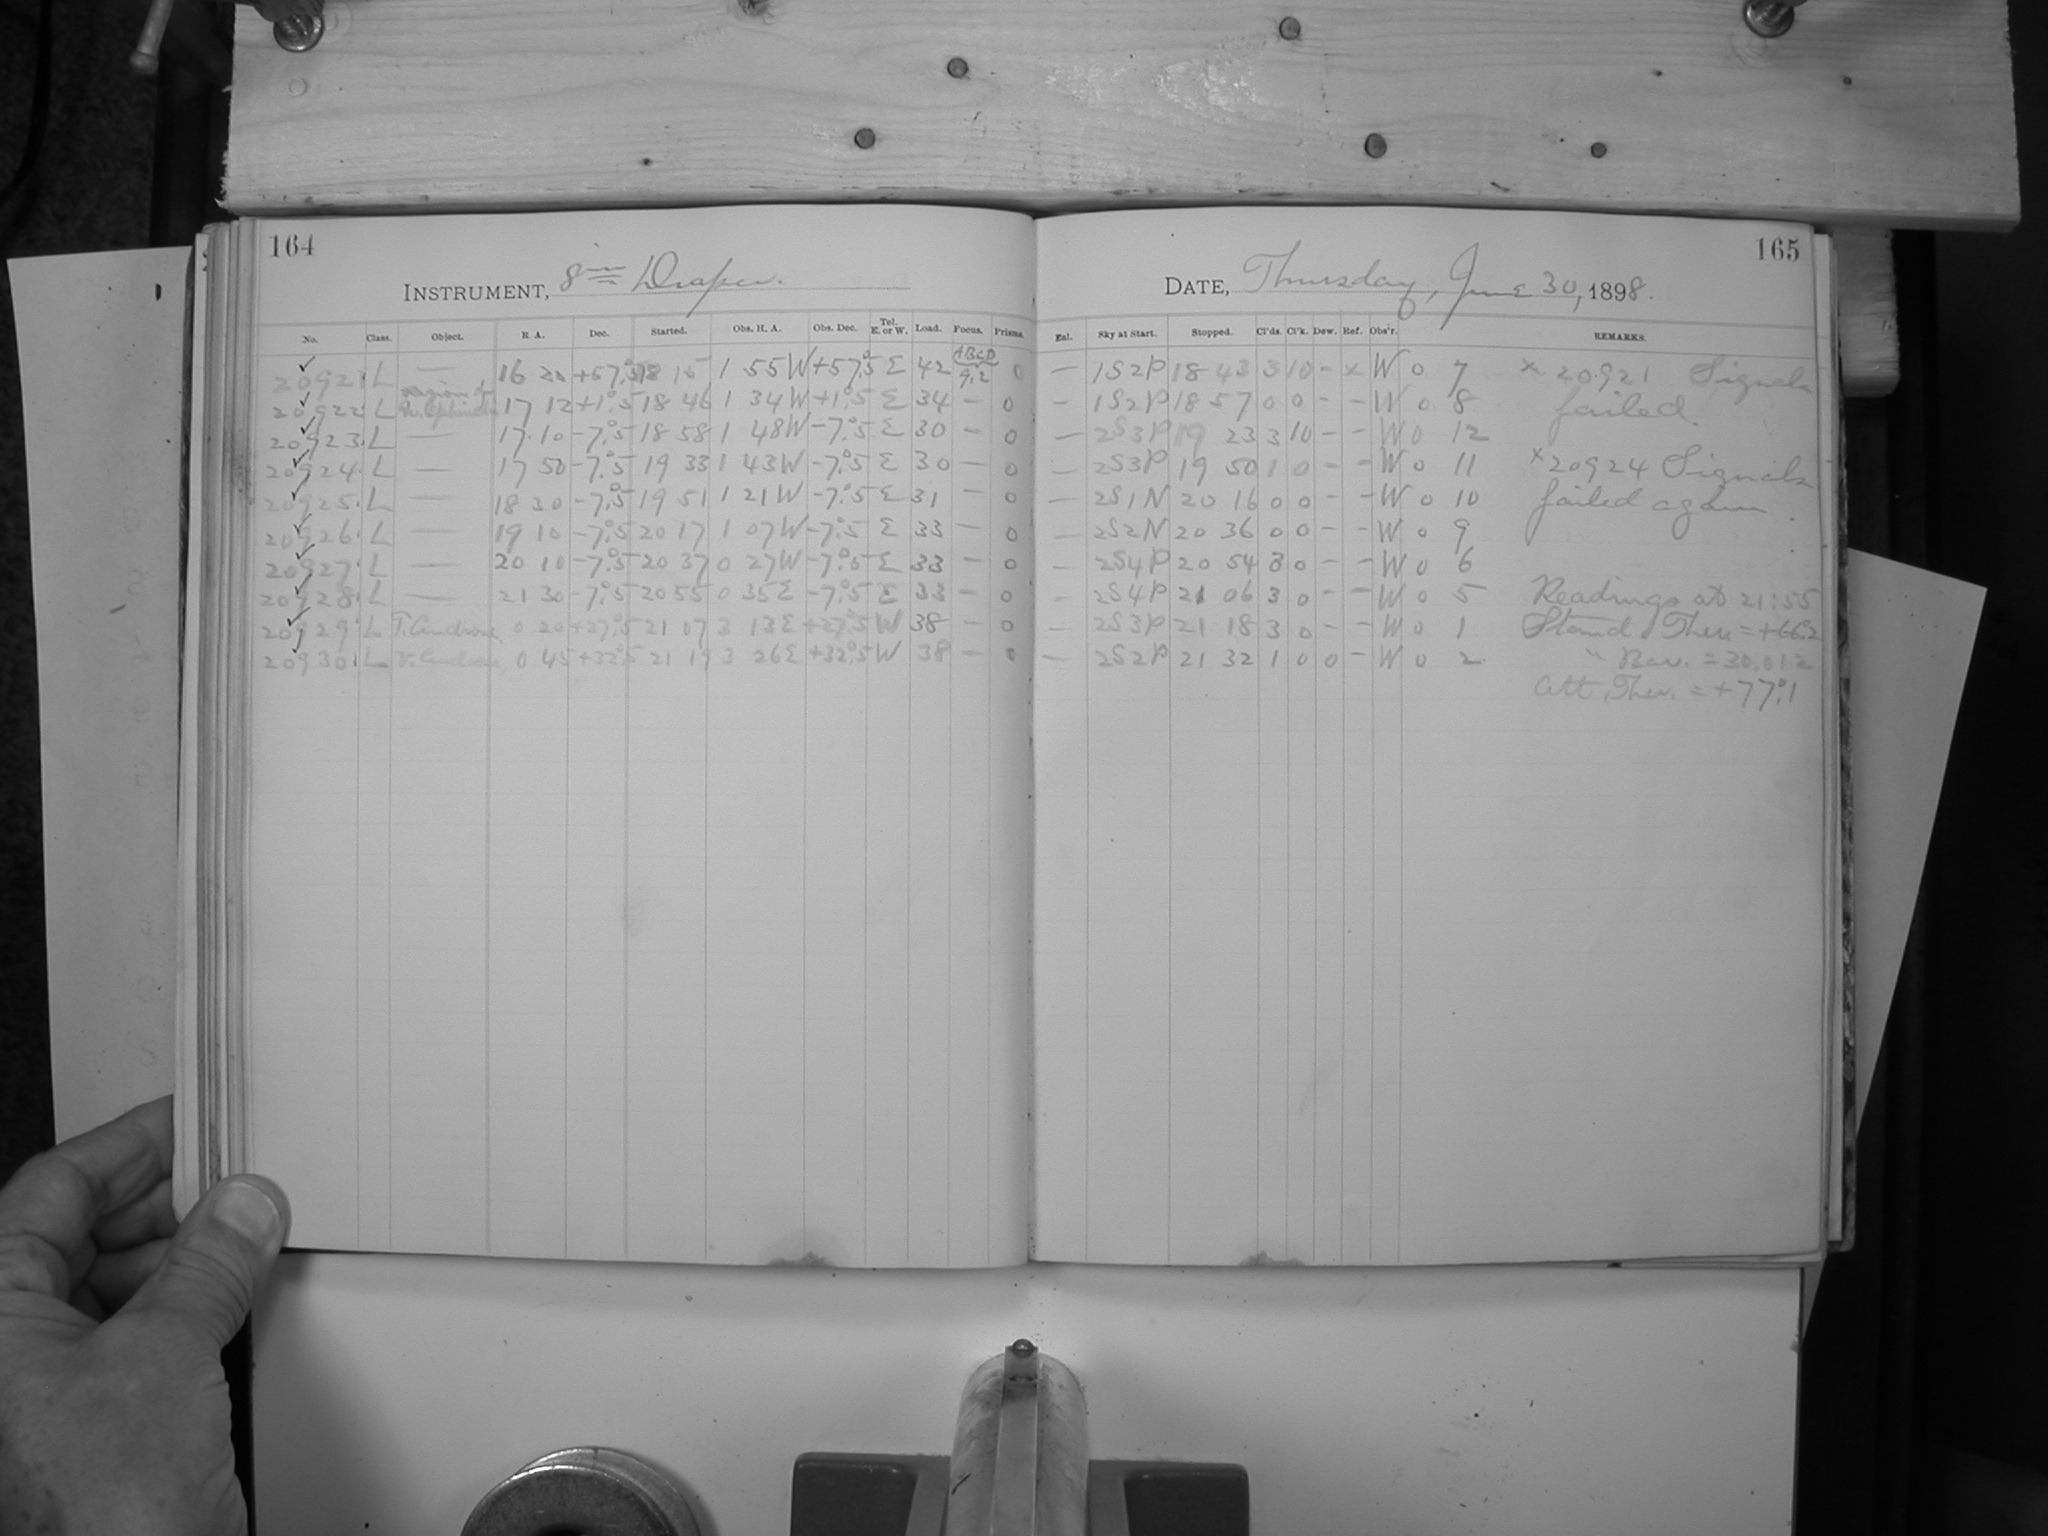 164
INSTRUMENT, 8 in Draper.
No. Class. Object. R. A. Dec. Started. Obs. H. A. Obs. Dec. Tel. E. or W. Load. Focus. Prisms.
20921 L — 16 20 +57°.5 18 15 1 55W +57°.5 E 42 ABCD 9.2 0
20922 L region of 17 12 +1°.5 18 46 1 34W +1°.5 E 34 — 0
20923 L — 17 10 -7°.5 18 58 1 48W -7°.5 E 30 — 0
20924 L — 17 50 -7°.5 19 33 1 43W -7°.5 E 30 — 0
20925 L — 18 30 -7°.5 19 51 1 21W -7°.5 E 31 — 0
20926 L — 19 10 -7°.5 20 17 1 07W -7°.5 E 33 — 0
20927 L — 20 10 -7°.5 20 37 0 27W -7°.5 E 33 — 0
20928 L — 21 30 -7°.5 20 55 0 35E -7°.5 E 33 — 0
20929 L T. Androm. 0 20 +27°.5 21 07 3 13E +27°.5 W 38 — 0
20930 L 0 45 +32°.5 21 19 3 26E +32°.5 W 38 — 0
165
DATE, Thursday, June 30, 1898.
Enl. Sky at Start. Stopped. Cl'ds. Cl'k. Dew. Ref. Obs'r. REMARKS.
— 1S2P 18 43 3 10 - x W 0 7 x 20921 Signals
— 1S2P 18 57 0 0 - - W 0 8 failed.
— 2S3P 19 23 3 10 - - W 0 12
— 2S3P 19 50 1 0 - - W 0 11 x 20924 Signals
— 2S1N 20 16 0 0 - - W 0 10 failed again.
— 2S2N 20 36 0 0 - - W 0 9
— 2S4P 20 54 3 0 - - W 0 6
— 2S4P 21 06 3 0 - - W 0 5 Readings at 21:55
— 2S3P 21 18 3 0 - - W 0 1 Stand. Ther. = +66°.2
— 2S2P 21 32 1 0 0 - W 0 2 " Bar. = 30.012
Att. Ther. = +77°.1